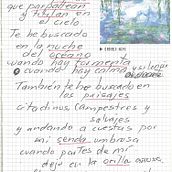 que parpadean
y titulan en
el cielo
Te he buscado
en la noche
del océano
cuando hay tormenta
o cuando hay calma
y silencio
También te he buscado
en los paisajes
citadinos campestres y
salvajes
y andando a cuestas por
mi senda umbrosa
cuando partes de mi
dejo en la orilla